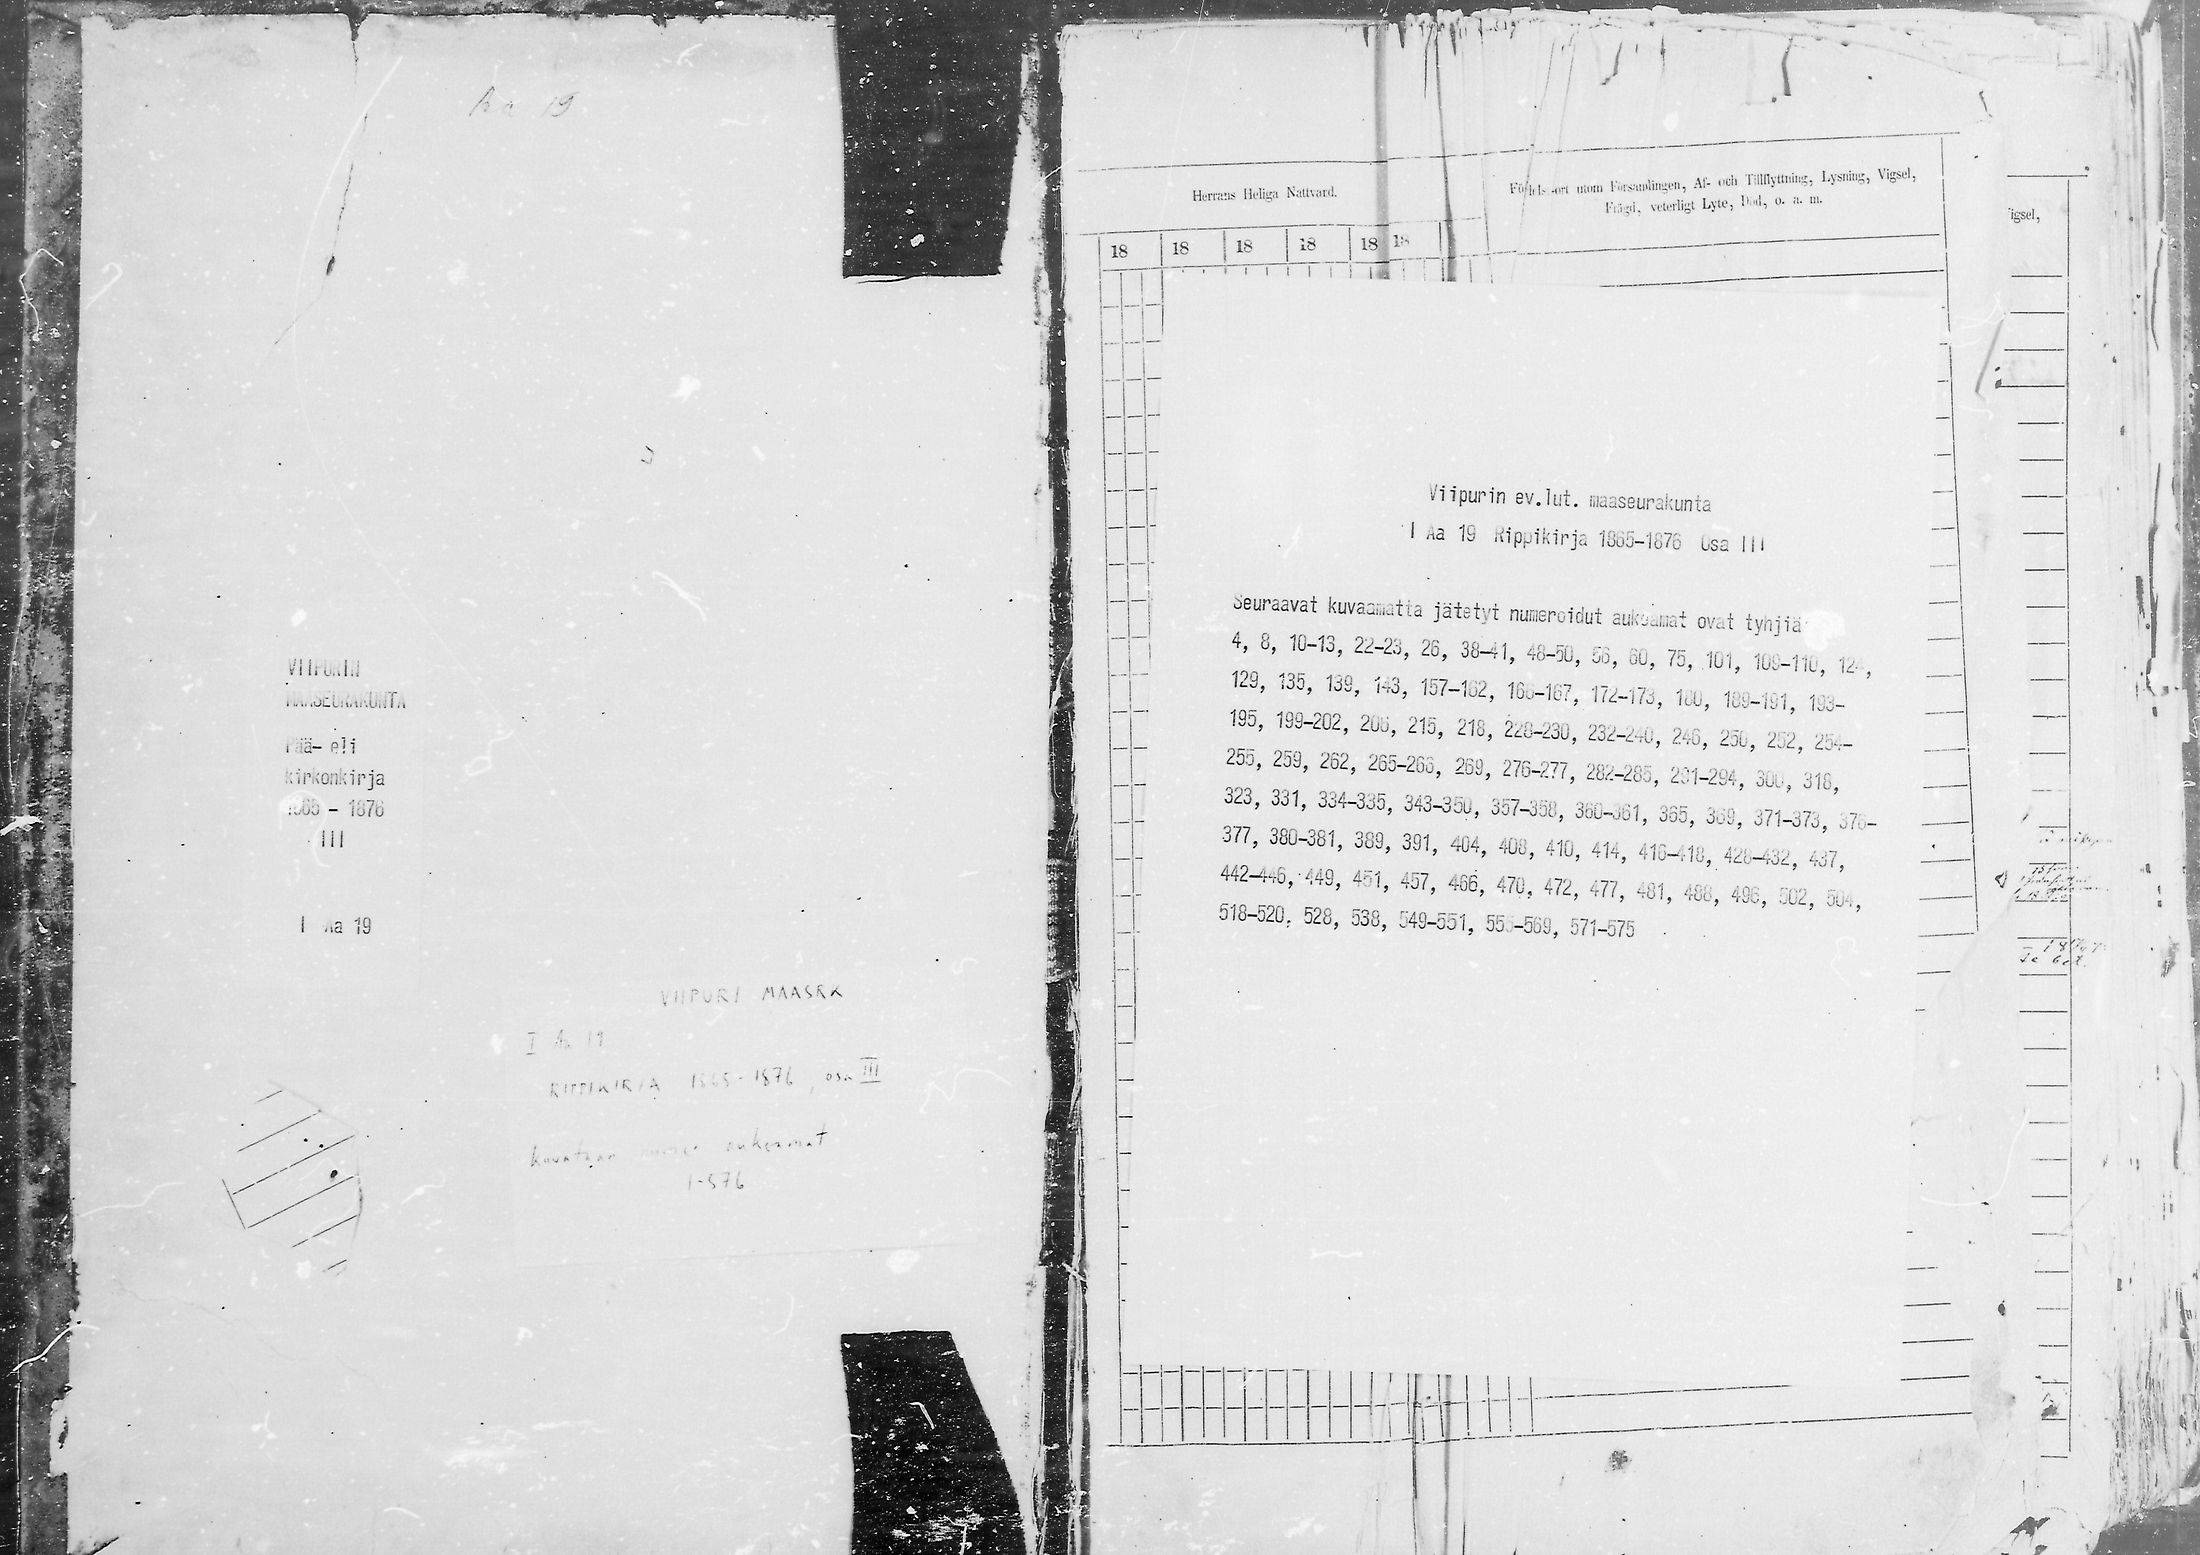 Aa 19
VIIPURIN
MAASEURAKUNTA
Pää- eli
kirkonkirja
1865 - 1876
III
I Aa 19
VIIPURI MAASRK
I Aa 19
RIPPIKIRJA 1865-1876, osa III
kuvataan aukeamat
1-576
Herrans Heliga Nattvard.
Födelse-ort utom Församlingen, Af- och Tillflyttning, Lysning, Vigsel,
Frägd, veterligt Lyte, Död, o. a. m.
18 18 18 18 18 18
Vigsel,
Viipurin ev.lut. maaseurakunta
I Aa 19 Rippikirja 1865-1876 Osa III
Seuraavat kuvaamatta jätetyt numeroidut aukeamat ovat tyhjiä
4, 8, 10-13, 22-23, 26, 38-41, 48-50, 56, 60, 75, 101, 109-110, 124,
129, 135, 139, 143, 157-162, 166-167, 172-173, 180, 189-191, 193-
195, 199-202, 206, 215, 218, 228-230, 232-240, 246, 250, 252, 254-
255, 259, 262, 265-266, 269, 276-277, 282-285, 291-294, 300, 318,
323, 331, 334-335, 343-350, 357-358, 360-361, 365, 369, 371-373, 376-
377, 380-381, 389, 391, 404, 408, 410, 414, 416-418, 428-432, 437,
442-446, 449, 451, 457, 466, 470, 472, 477, 481, 488, 496, 502, 504,
518-520, 528, 538, 549-551, 555-569, 571-575